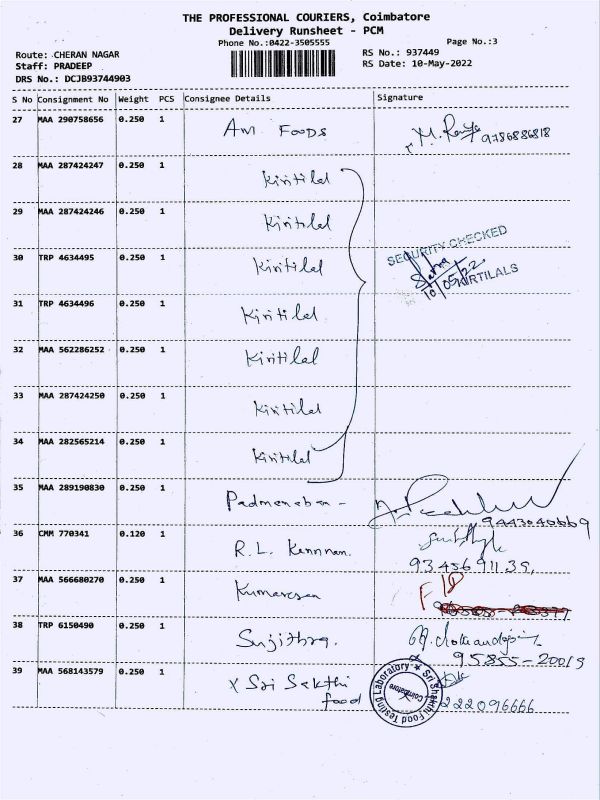 THE PROFESSIONAL COURIERS, Coimbatore
Delivery Runsheet - PCM
Phone No.:0422-3505555
Page No.:3
Route: CHERAN NAGAR
RS No.: 937449
Staff: PRADEEP
RS Date: 10-May-2022
DRS No.: DCJB93744903
S No Consignment No Weight PCS Consignee Details Signature
27 MAA 290758656 0.250 1 Am Foods 9786886818
28 MAA 287424247 0.250 1 Kiritilal
29 MAA 287424246 0.250 1 Kiritilal
30 TRP 4634495 0.250 1 Kiritilal
SECURITY CHECKED
10/05/22
KIRTILALS
31 TRP 4634496 0.250 1 Kiritilal
32 MAA 562286252 0.250 1 Kiritilal
33 MAA 287424250 0.250 1 Kiritilal
34 MAA 282565214 0.250 1 Kiritilal
35 MAA 289190830 0.250 1 Padmenaban -
9443040669
36 CMM 770341 0.120 1 R.L. Kannnan.
9345691139,
37 MAA 566680270 0.250 1 Kumaresan
38 TRP 6150490 0.250 1 Sujithra.
95855-20019
39 MAA 568143579 0.250 1 x Sri Sakthi
food
Sri Shakthi Food Testing Laboratory
Coimbatore
2222096666